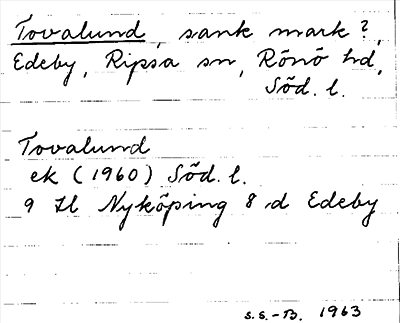 Tovalund, sank mark?,
Edeby, Ripsa sn, Rönö hd,
Söd. l.
Tovalund
ek (1960) Söd. l.
9 Hl Nyköping 8 d Edeby
S.S.-B. 1963